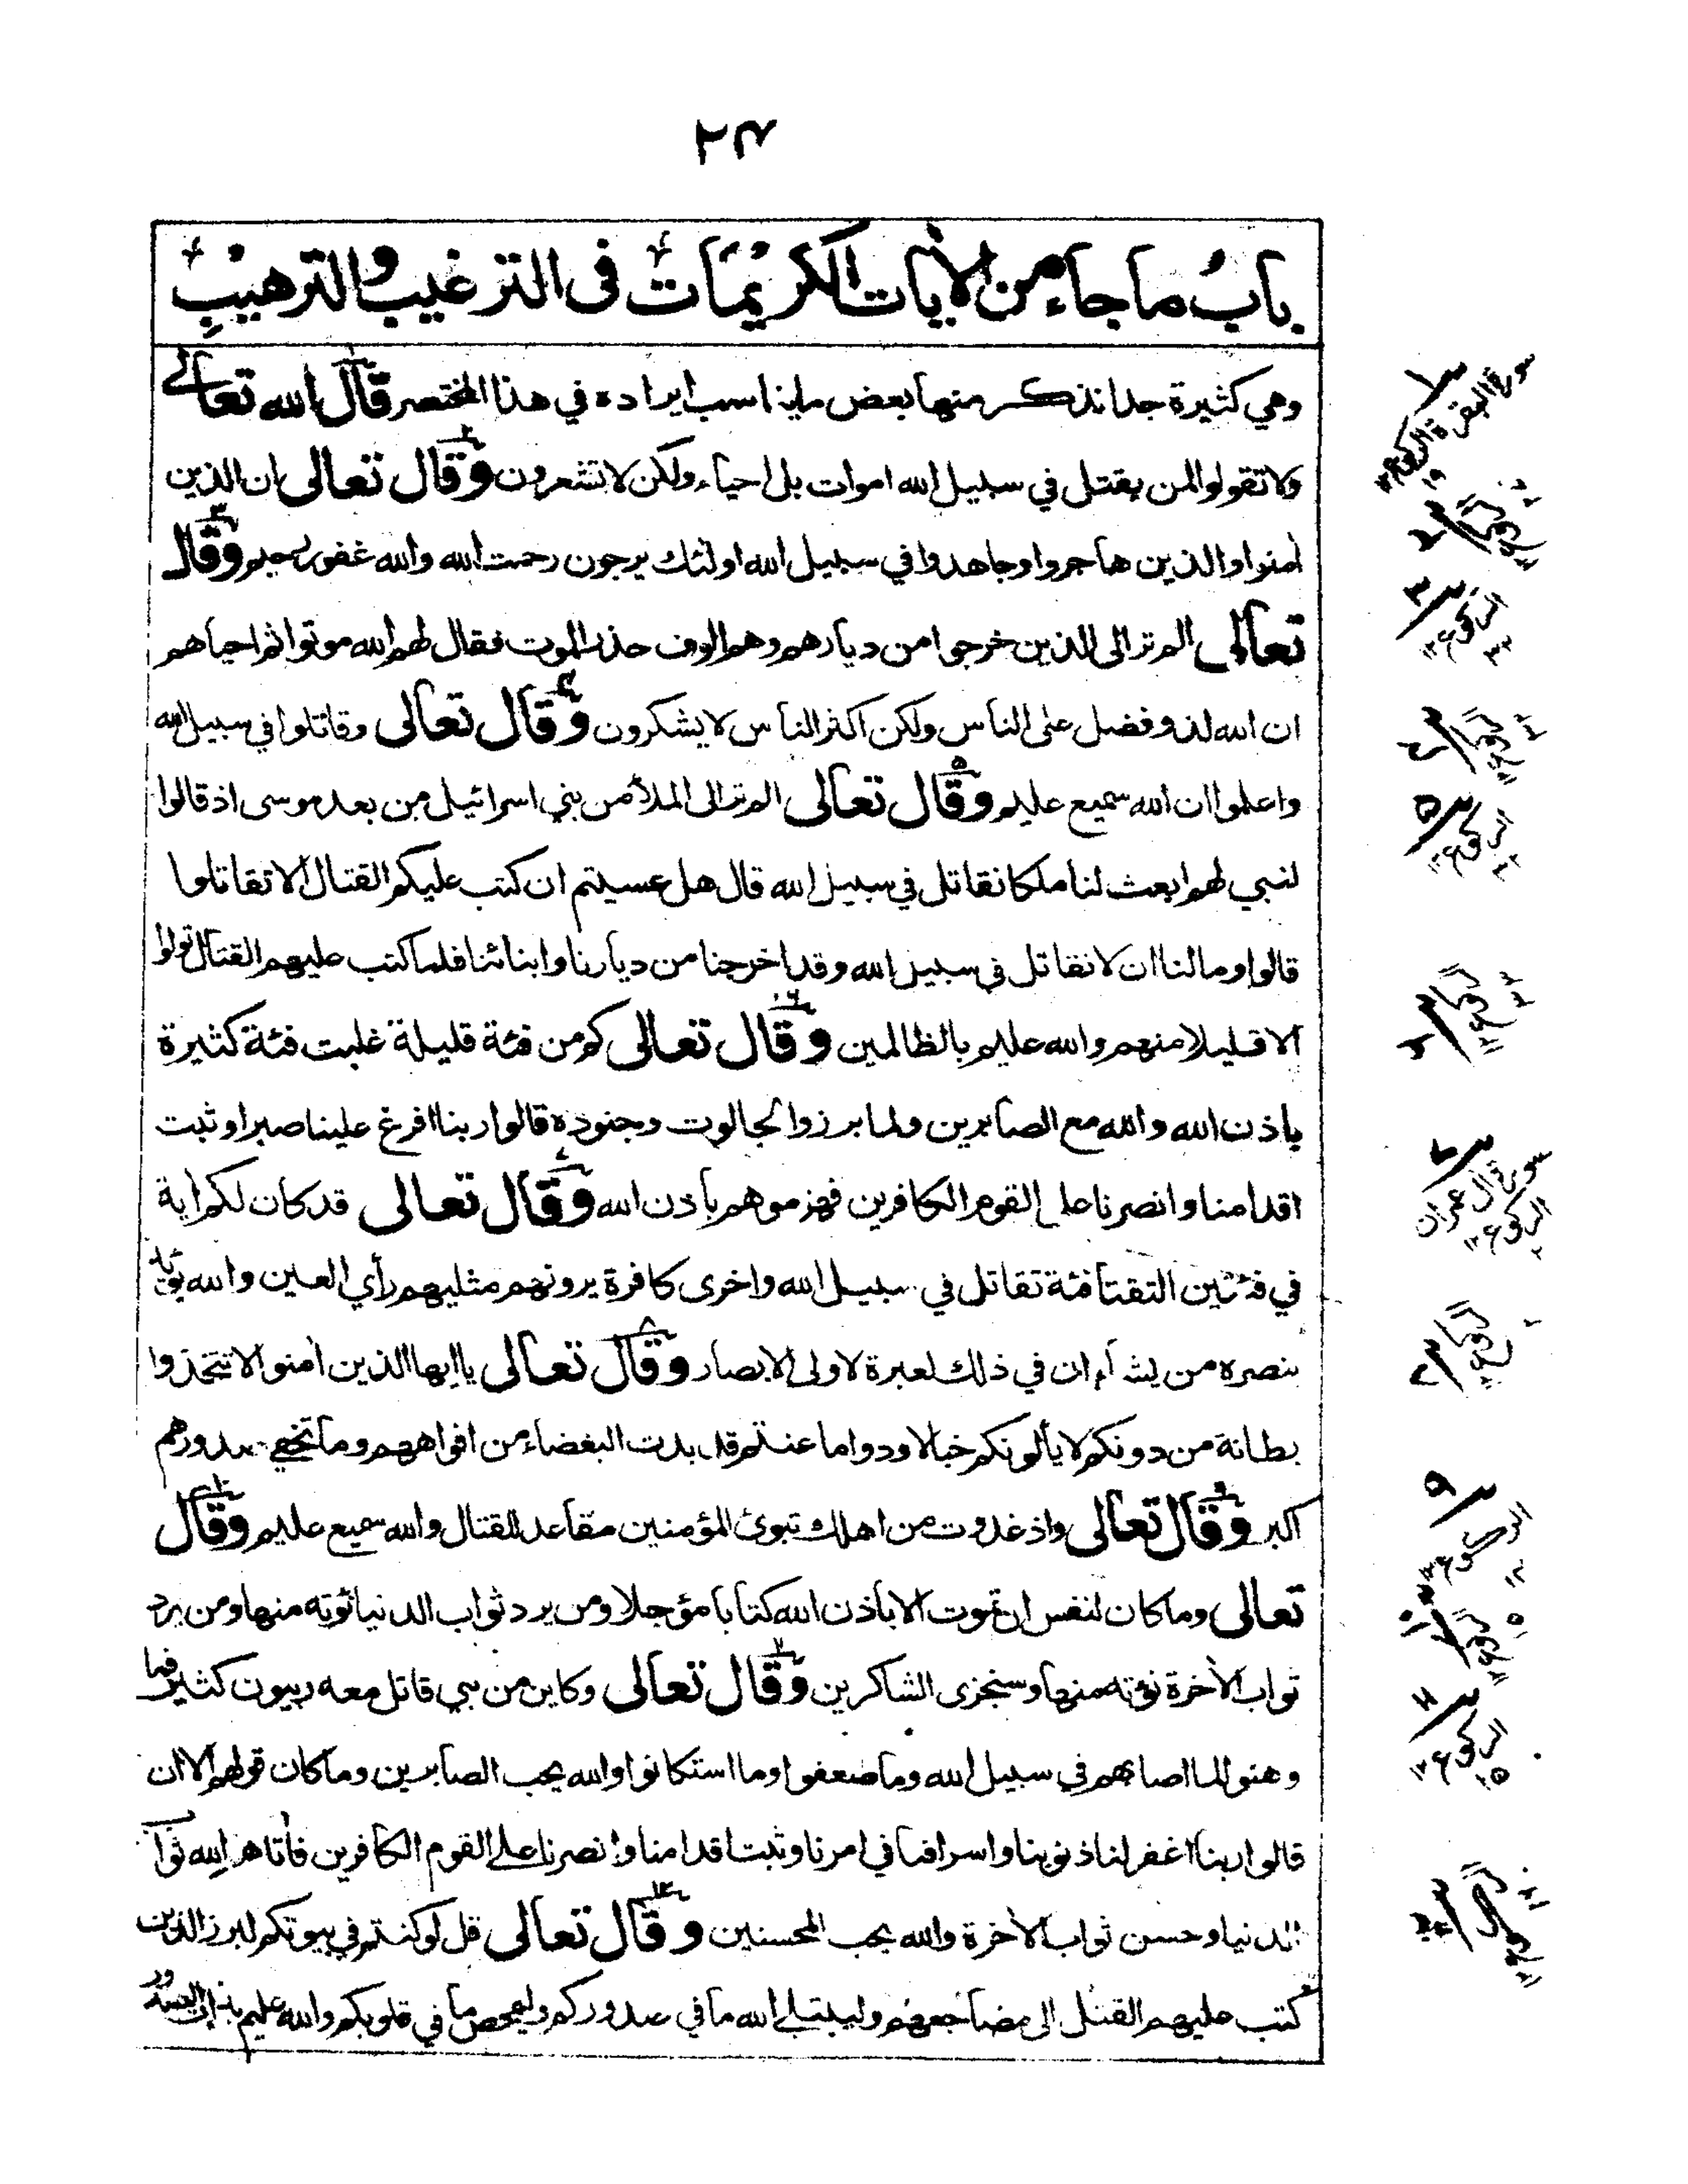 ٢٤
باب ما جاء من الأيات الكريمات في الترغيب والترهيب
وهي كثيرة جدا نذكر منها بعض ما يناسب ايراده في هذا المختصر قال الله تعالى
ولا تقولوا لمن يقتل في سبيل الله اموات بل احياء ولكن لا تشعرون وقال تعالى ان الذين
أمنوا والذين هاجروا وجاهدوا في سبيل الله اولئك يرجون رحمت الله والله غفور رحيم وقال
تعالى الم تر الى الذين خرجوا من ديارهم وهم الوف حذر الموت فقال لهم الله موتوا ثم احياهم
ان الله لذو فضل على الناس ولكن اكثر الناس لا يشكرون وقال تعالى وقاتلوا في سبيل الله
واعلموا ان الله سميع عليم وقال تعالى الم تر الى الملأ من بني اسرائيل من بعد موسى اذ قالوا
لنبي لهم ابعث لنا ملكا نقاتل في سبيل الله قال هل عسيتم ان كتب عليكم القتال الا تقاتلوا
قالوا وما لنا ان لا نقاتل في سبيل الله وقد اخرجنا من ديارنا وابنائنا فلما كتب عليهم القتال تولوا
الا قليلا منهم والله عليم بالظالمين وقال تعالى كم من فئة قليلة غلبت فئة كثيرة
باذن الله والله مع الصابرين ولما برزوا لجالوت وجنوده قالوا ربنا افرغ علينا صبرا وثبت
اقدامنا وانصرنا على القوم الكافرين فهزموهم باذن الله وقال تعالى قد كان لكم اية
في فئتين التقتا فئة تقاتل في سبيل الله واخرى كافرة يرونهم مثليهم رأي العين والله يؤيد
بنصره من يشاء ان في ذلك لعبرة لاولى الابصار وقال تعالى يا ايها الذين أمنوا لا تتخذوا
بطانة من دونكم لا يألونكم خبالا ودوا ما عنتم قد بدت البغضاء من افواههم وما تخفي صدورهم
اكبر وقال تعالى واذ غدوت من اهلك تبوئ المؤمنين مقاعد للقتال والله سميع عليم وقال
تعالى وما كان لنفس ان تموت الا باذن الله كتابا مؤجلا ومن يرد ثواب الدنيا نؤته منها ومن يرد
ثواب الأخرة نؤته منها وسنجزى الشاكرين وقال تعالى وكاين من نبي قاتل معه ربيون كثير فما
وهنوا لما اصابهم في سبيل الله وما ضعفوا وما استكانوا والله يحب الصابرين وما كان قولهم الا ان
قالوا ربنا اغفر لنا ذنوبنا واسرافنا في امرنا وثبت اقدامنا وانصرنا على القوم الكافرين فأتاهم الله ثواب
الدنيا وحسن ثواب الأخرة والله يحب المحسنين وقال تعالى قل لو كنتم في بيوتكم لبرز الذين
كتب عليهم القتل الى مضاجعهم وليبتلي الله ما في صدوركم وليمحص ما في قلوبكم والله عليم بذات الصدور
سورة البقرة الركوع ١٩
الركوع
الركوع ٣٢
الركوع
الركوع
الركوع
سورة آل عمران
الركوع
الركوع
الركوع
الركوع ١٥
الركوع ١٥
الركوع